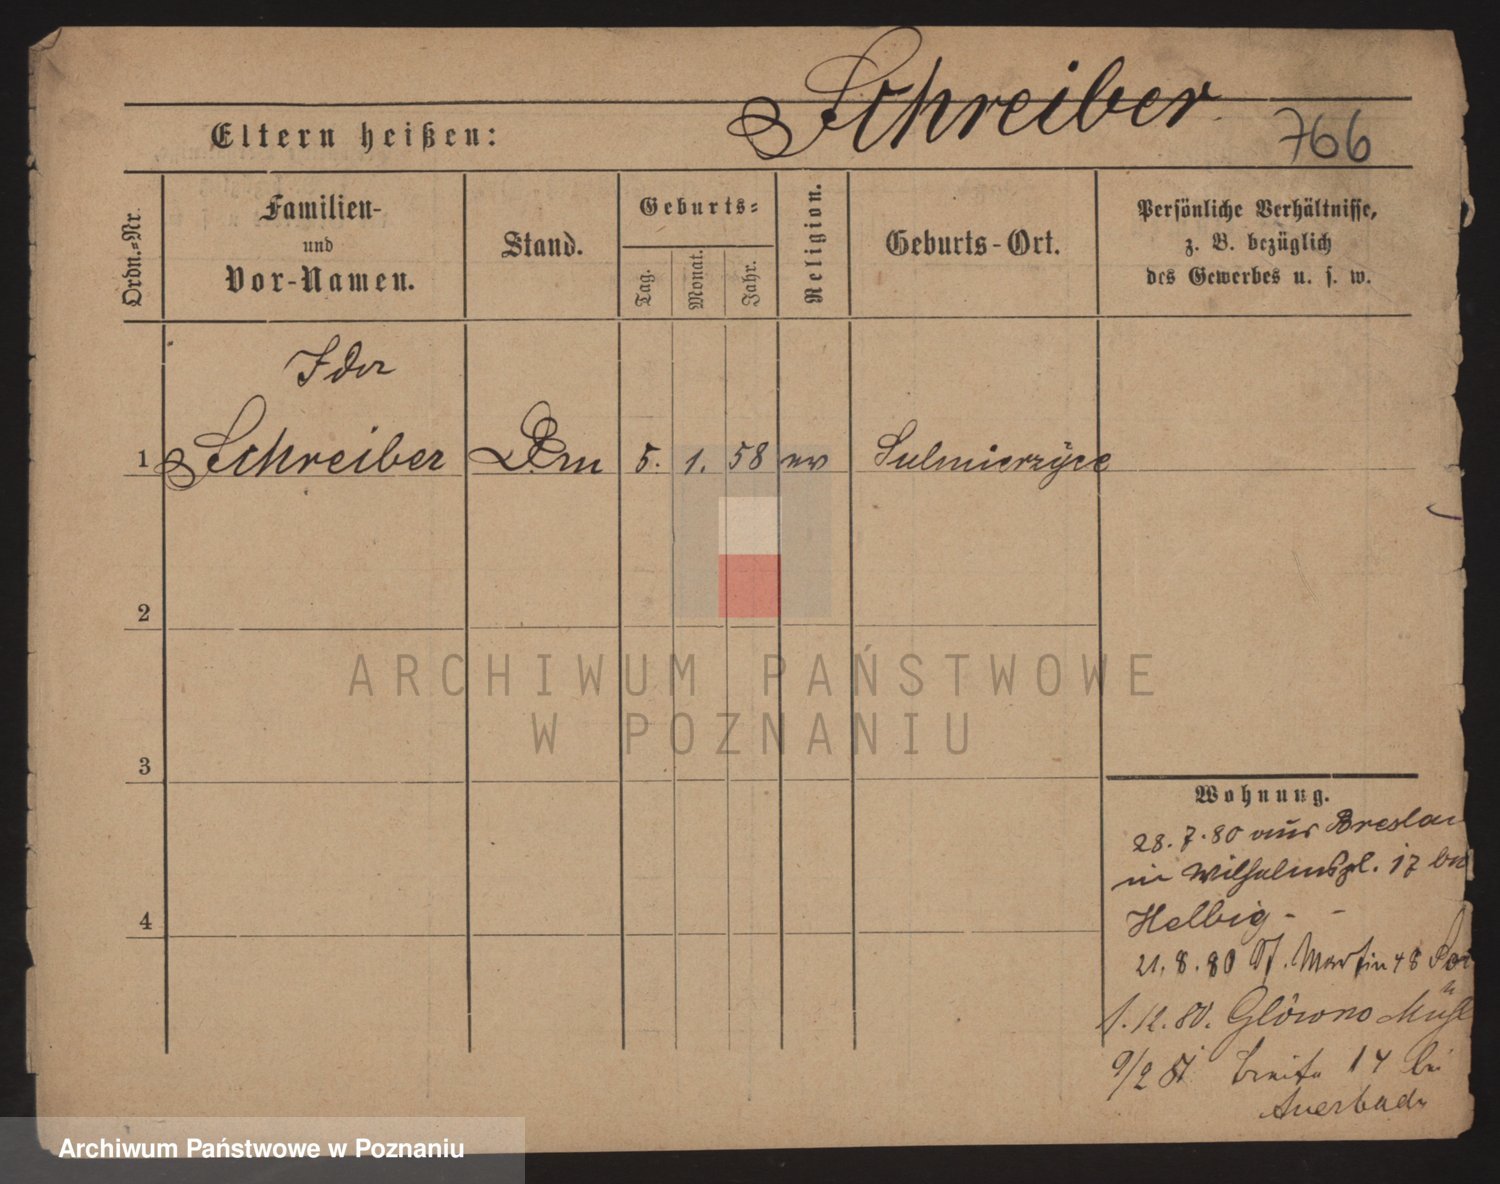 Schreiber
766
Eltern heißen:
Ordn.-Nr.
Familien-
und
Vor-Namen.
Stand.
Geburts-
Tag.
Monat.
Jahr.
Religion.
Geburts-Ort.
Persönliche Verhältnisse,
z. B. bezüglich
des Gewerbes u. s. w.
Ida
1 Schreiber 5. 1. 58 ev Sulmierzyce
2
ARCHIWUM PAŃSTWOWE
W POZNANIU
3
Wohnung.
28. 7. 80 aus Breslau
in Wilhelmspl. 17 bei
Helbig - -
4
21. 8. 80 St. Martin 48
1. 12. 80. Glówno Mühl
9/2 81 Breite 14 bei
Auerbach
Archiwum Państwowe w Poznaniu